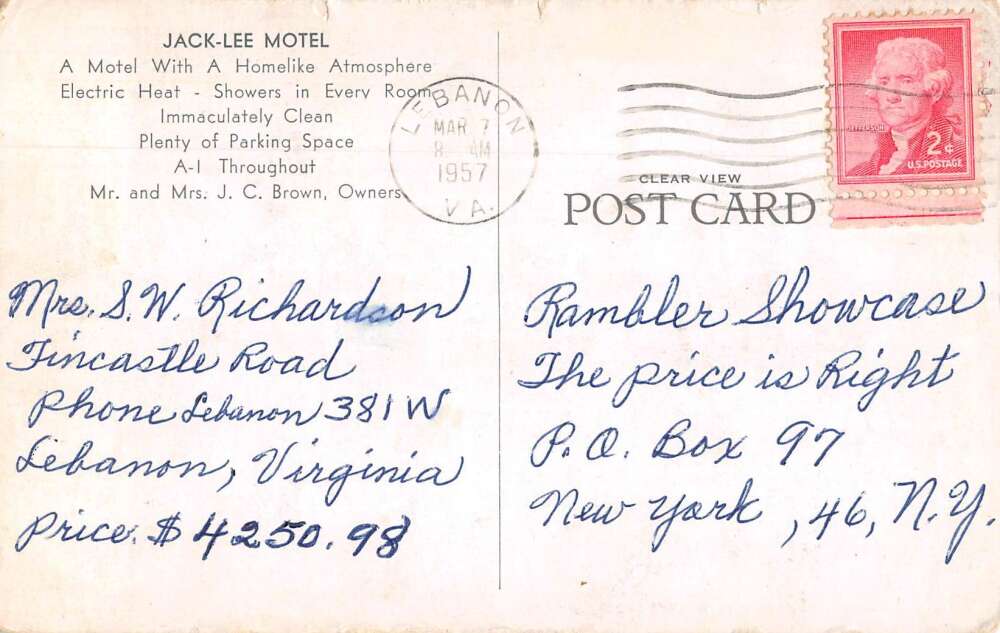 JACK-LEE MOTEL
A Motel With A Homelike Atmosphere
Electric Heat - Showers in Every Room
Immaculately Clean
Plenty of Parking Space
A-I Throughout
Mr. and Mrs. J. C. Brown, Owners
LEBANON
MAR 7
8 AM
1957
VA.
JEFFERSON
2¢
U.S. POSTAGE
CLEAR VIEW
POST CARD
Mrs. S. W. Richardson
Fincastle Road
Phone Lebanon 381W
Lebanon, Virginia
Price. $4250.98
Rambler Showcase
The price is Right
P.O. Box 97
New York, 46, N.Y.